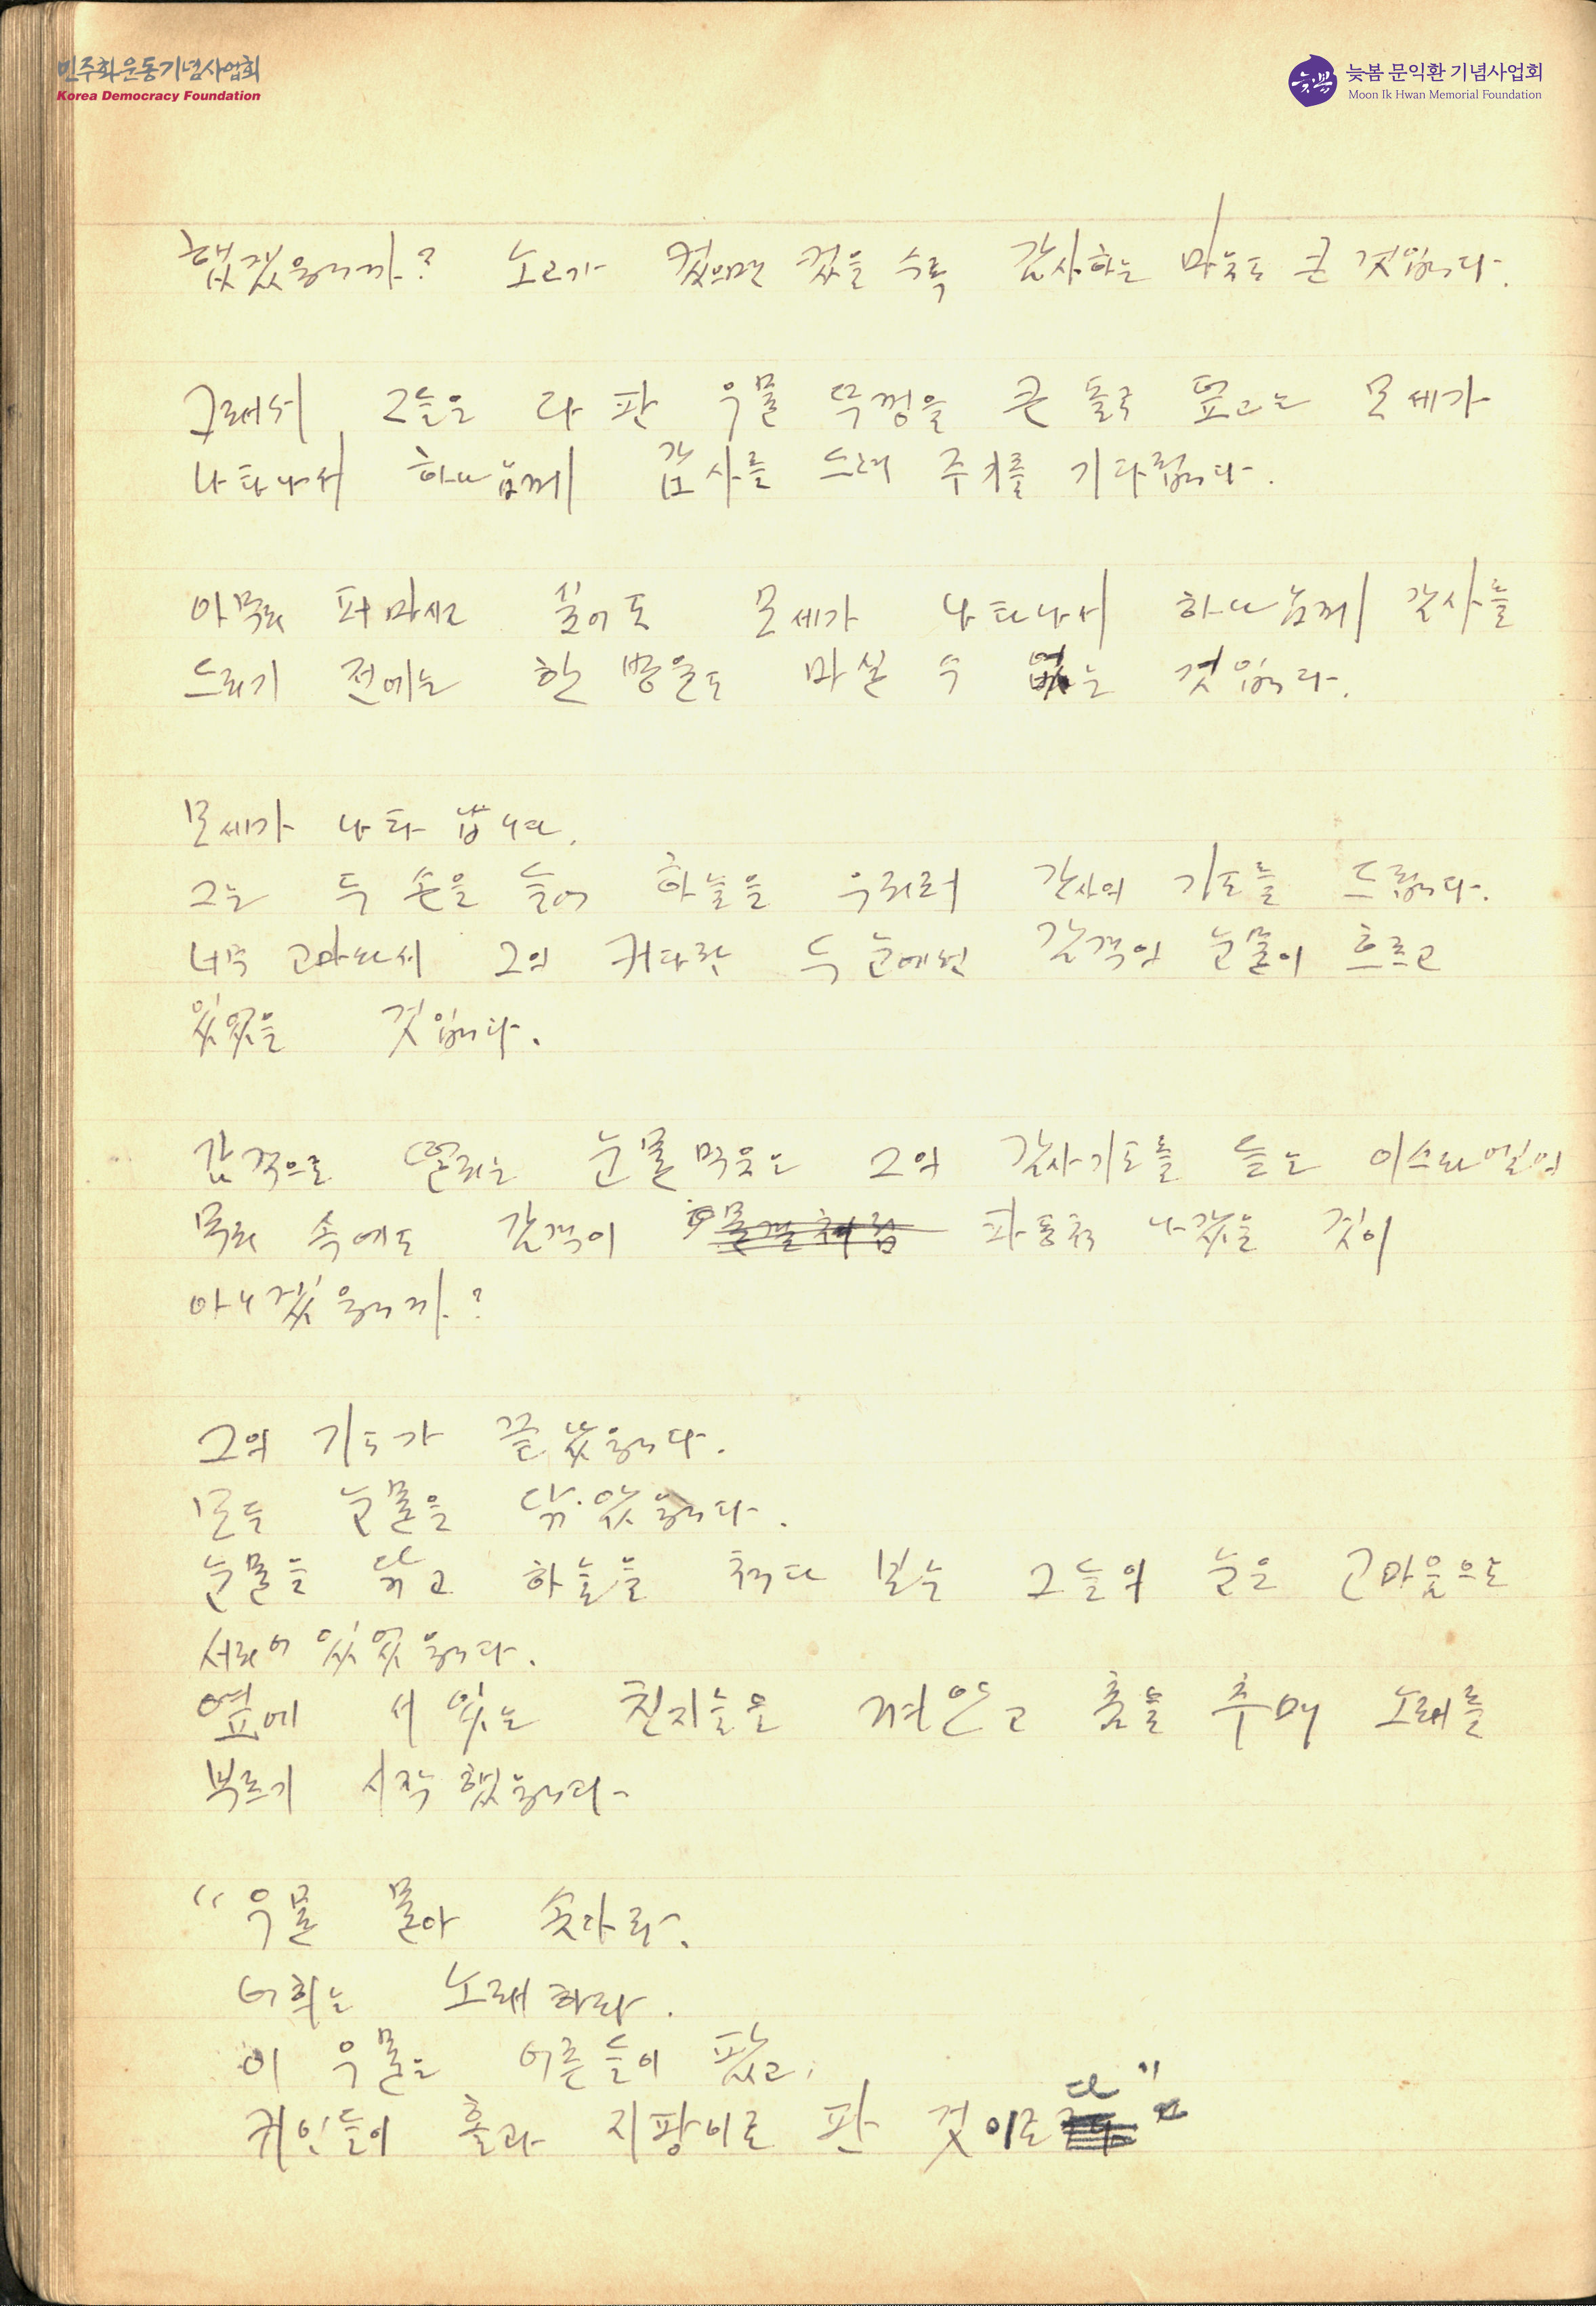 민주화운동기념사업회
Korea Democracy Foundation
늦봄 문익환 기념사업회
Moon Ik Hwan Memorial Foundation
했겠읍니까? 노고가 컸으면 컸을 수록 감사하는 마음도 큰 것입니다.
그래서 그들은 다 판 우물 뚜껑을 큰 돌로 덮고는 모세가
나타나서 하나님께 감사를 드려 주기를 기다립니다.
아무리 퍼마시고 싶어도 모세가 나타나서 하나님께 감사를
드리기 전에는 한 방울도 마실 수 없는 것입니다.
모세가 나타납니다.
그는 두 손을 들어 하늘을 우러러 감사의 기도를 드립니다.
너무 고마와서 그의 커다란 두 눈에선 감격의 눈물이 흐르고
있었을 것입니다.
감격으로 떨리는 눈물 먹은 그의 감사기도를 듣는 이스라엘의
무리 속에도 감격이 물결처럼 파동쳐 나갔을 것이
아니겠읍니까?
그의 기도가 끝났읍니다.
모두 눈물을 닦았읍니다.
눈물을 닦고 하늘을 쳐다 보는 그들의 눈은 고마움으로
서리어 있었읍니다.
옆에 서 있는 친지들을 껴안고 춤을 추며 노래를
부르기 시작했읍니다.
"우물 물아 솟아라.
너희는 노래하라.
이 우물은 어른들이 팠고,
귀인들이 홀과 지팡이로 판 것이로다"